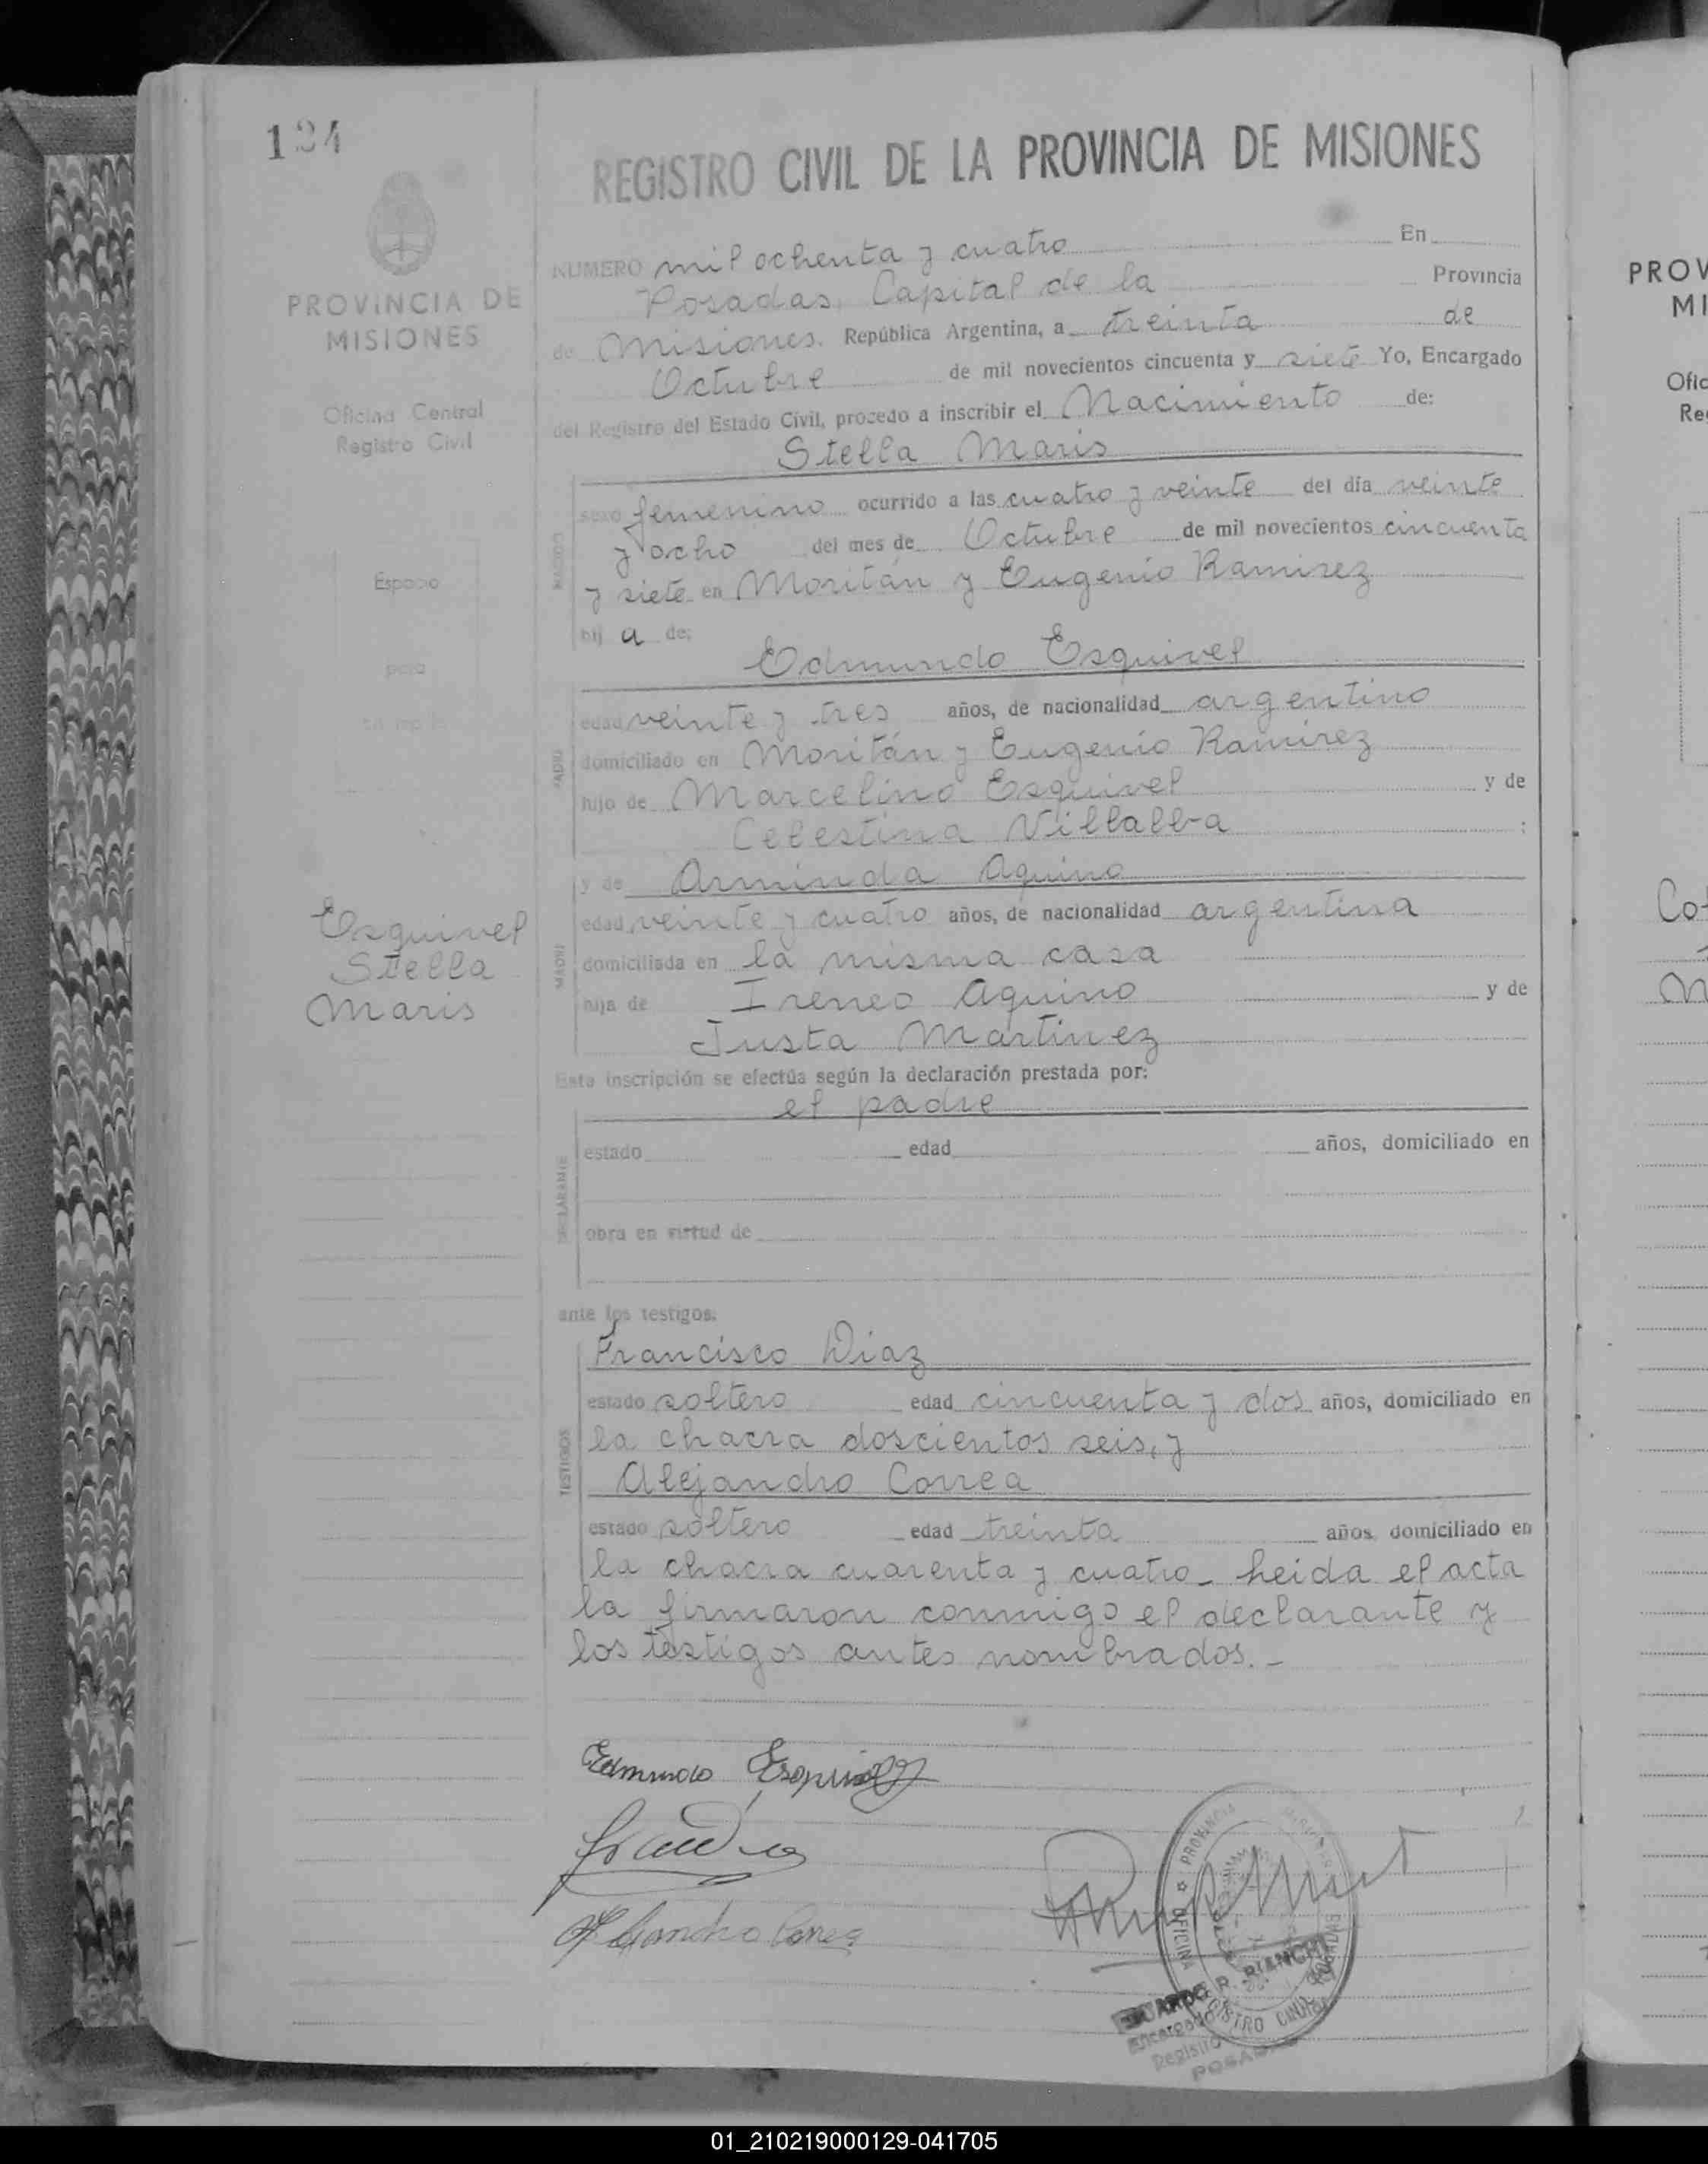 134
REGISTRO CIVIL DE LA PROVINCIA DE MISIONES
PROVINCIA DE
MISIONES
Oficina Central
Registro Civil
Espacio
para
Esquivel
Stella
Maris
NUMERO mil ochenta y cuatro En
Posadas, Capital de la Provincia
de Misiones. República Argentina, a treinta de
Octubre de mil novecientos cincuenta y siete Yo, Encargado
del Registro del Estado Civil, procedo a inscribir el Nacimiento de:
Stella Maris
sexo femenino ocurrido a las cuatro y veinte del día veinte
y ocho del mes de Octubre de mil novecientos cincuenta
y siete en Moritán y Eugenio Ramirez
hij a de:
Edmundo Esquivel
edad veinte y tres años, de nacionalidad argentino
domiciliado en Moritán y Eugenio Ramirez
hijo de Marcelino Esquivel y de
Celestina Villalba :
y de Arminda Aquino
edad veinte y cuatro años, de nacionalidad argentina
domiciliada en la misma casa
hija de Ireneo Aquino y de
Justa Martinez
Esta inscripción se efectúa según la declaración prestada por:
el padre
DECLARANTE
estado edad años, domiciliado en
obra en virtud de
ante los testigos:
Francisco Diaz
estado soltero edad cincuenta y dos años, domiciliado en
la chacra doscientos seis, y
TESTIGOS
Alejandro Correa
estado soltero edad treinta años domiciliado en
la chacra cuarenta y cuatro_ Leida el acta
la firmaron conmigo el declarante y
los testigos antes nombrados. -
Edmundo Esquivel
Alejandro Correa
PROVINCIA
OFICINA
REGISTRO CIVIL
EDUARDO R. BIANCHI
Encargado
Registro
POSADAS
PROV
MI
Ofic
Re
Co
01_210219000129-041705